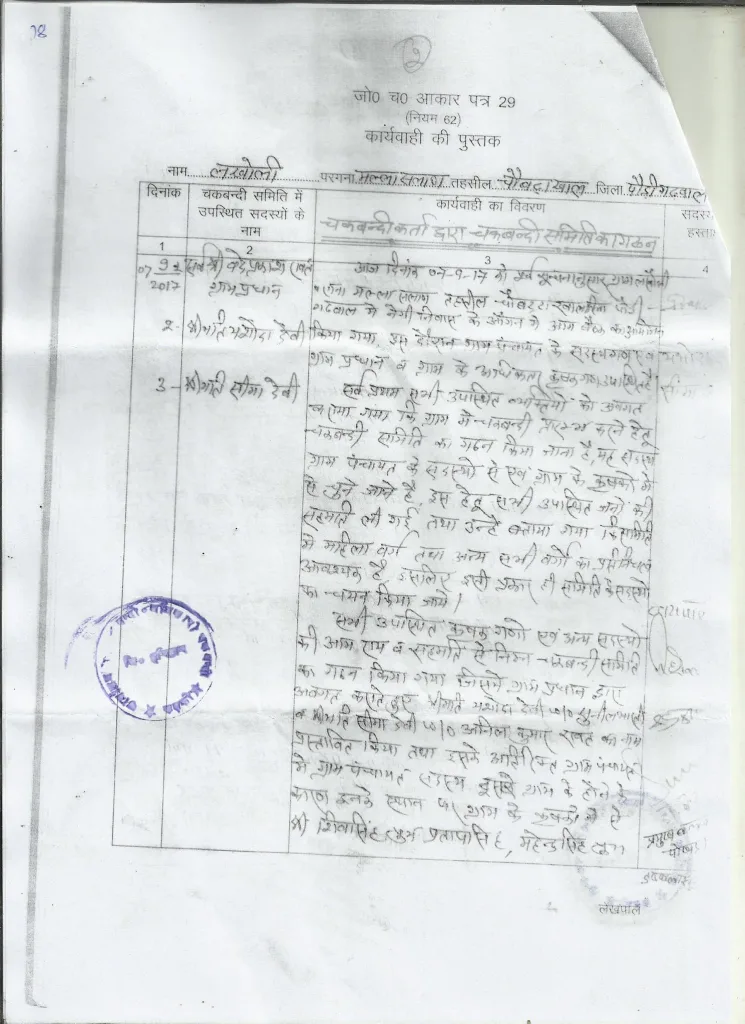 18
2
जो0 च0 आकार पत्र 29
(नियम 62)
कार्यवाही की पुस्तक
नाम लखोली परगना मल्ला सलाण तहसील चौबट्टाखाल जिला पौड़ी गढवाल
दिनांक
चकबन्दी समिति में उपस्थित सदस्यों के नाम
कार्यवाही का विवरण
सदस्य
हस्ता
चकबन्दीकर्ता द्वारा चकबन्दी समिति का गठन
1 2 3 4
07 9
2017
श्री वेदप्रकाश रावत
ग्राम प्रधान
2- श्रीमति यशोदा देवी
3- श्रीमति सीमा देवी
आज दिनांक 07-9-17 को पूर्व सूचनानुसार ग्राम लखोली
मल्ला सलाण तहसील चौबट्टाखाल पौड़ी
गढवाल में निवास के आँगन में आम बैठक का आयोजन
किया गया, इस दौरान ग्राम पंचायत के सदस्यगण एवं
ग्राम प्रधान व ग्राम के अधिकतर कृषक गण उपस्थित है
सर्व प्रथम सभी उपस्थित व्यक्तियों को अवगत
कराया गया कि ग्राम में चकबन्दी प्रारम्भ करने हेतु
चकबन्दी समिति का गठन किया जाना है, यह सदस्य
ग्राम पंचायत के सदस्यो से एवं ग्राम के कृषकों में
से चुने जाने है, इस हेतु सभी उपस्थित जनों की
सहमति ली गई, तथा उन्हें बताया गया कि समिति
में महिला वर्ग तथा अन्य सभी वर्गों का प्रतिनिधित्व
आवश्यक है, इसलिए इसी प्रकार ही समिति के सदस्यों
का चयन किया जाये।
सभी उपस्थित कृषक गणो एवं अन्य सदस्यो
की आम राय व सहमति से निम्न चकबन्दी समिति
का गठन किया गया जिसमें ग्राम प्रधान द्वारा
अवगत कराते हुए श्रीमति यशोदा देवी w/o सुनील
व श्रीमति सीमा देवी w/o अनिल कुमार रावत का नाम
प्रस्तावित किया तथा इसके अतिरिक्त ग्राम पंचायत
में ग्राम पंचायत सदस्य दूसरे ग्राम के होने के
कारण इनके स्थान पर ग्राम के कृषकों में से
श्री शिवसिंह पुत्र प्रतापसिंह, महेन्द्रसिंह पुत्र
लेखपाल